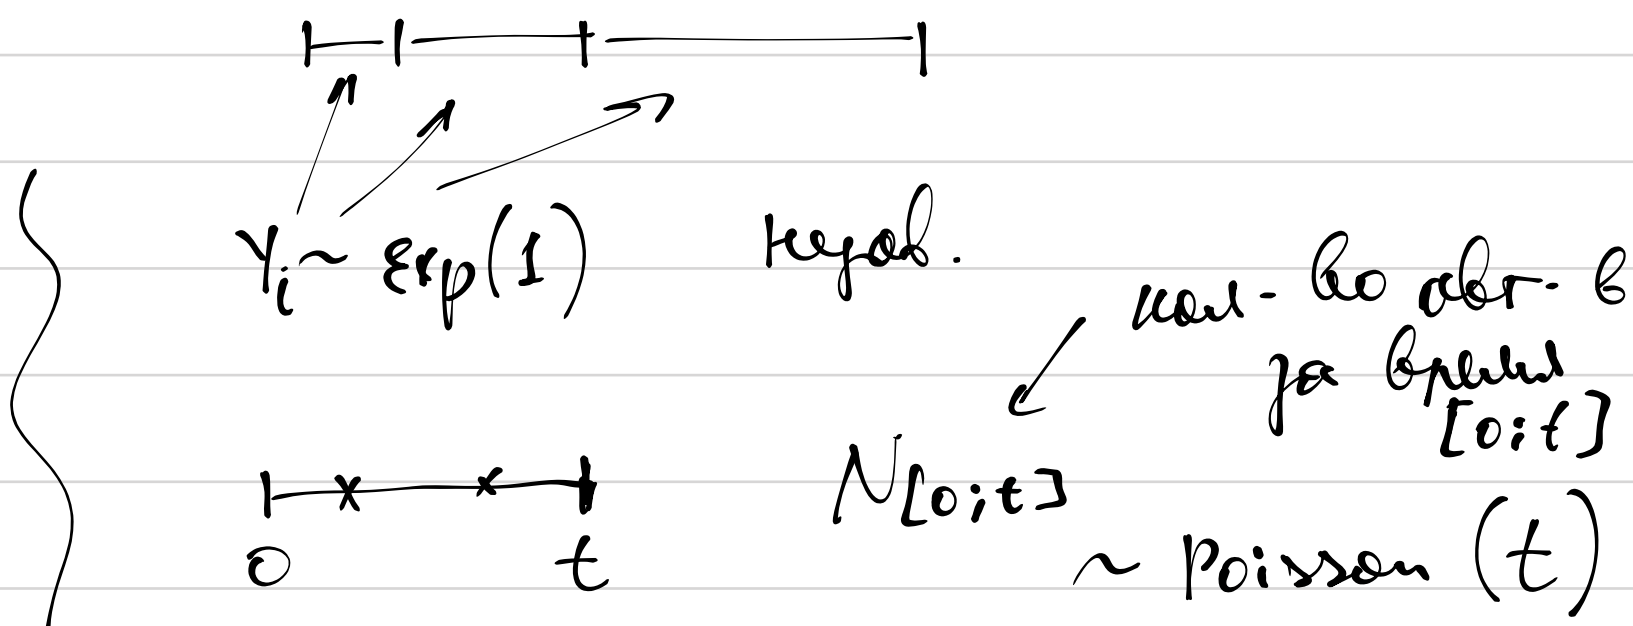 Y_i ~ Exp(1) незав.
кол-во авт-в
за время
[0;t]
N[0;t]
0 t
~ Poisson (t)